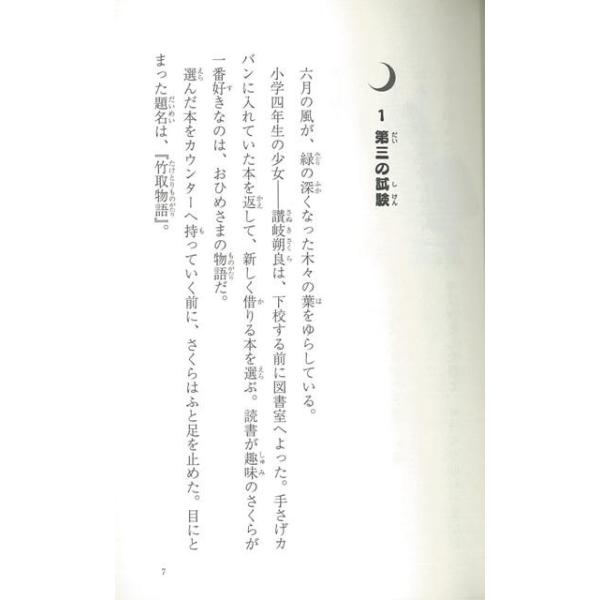 1 第三の試験
六月の風が、緑の深くなった木々の葉をゆらしている。
小学四年生の少女――讃岐朔良は、下校する前に図書室へよった。手さげカ
バンに入れていた本を返して、新しく借りる本を選ぶ。読書が趣味のさくらが
一番好きなのは、おひめさまの物語だ。
選んだ本をカウンターへ持っていく前に、さくらはふと足を止めた。目にと
まった題名は、『竹取物語』。
7